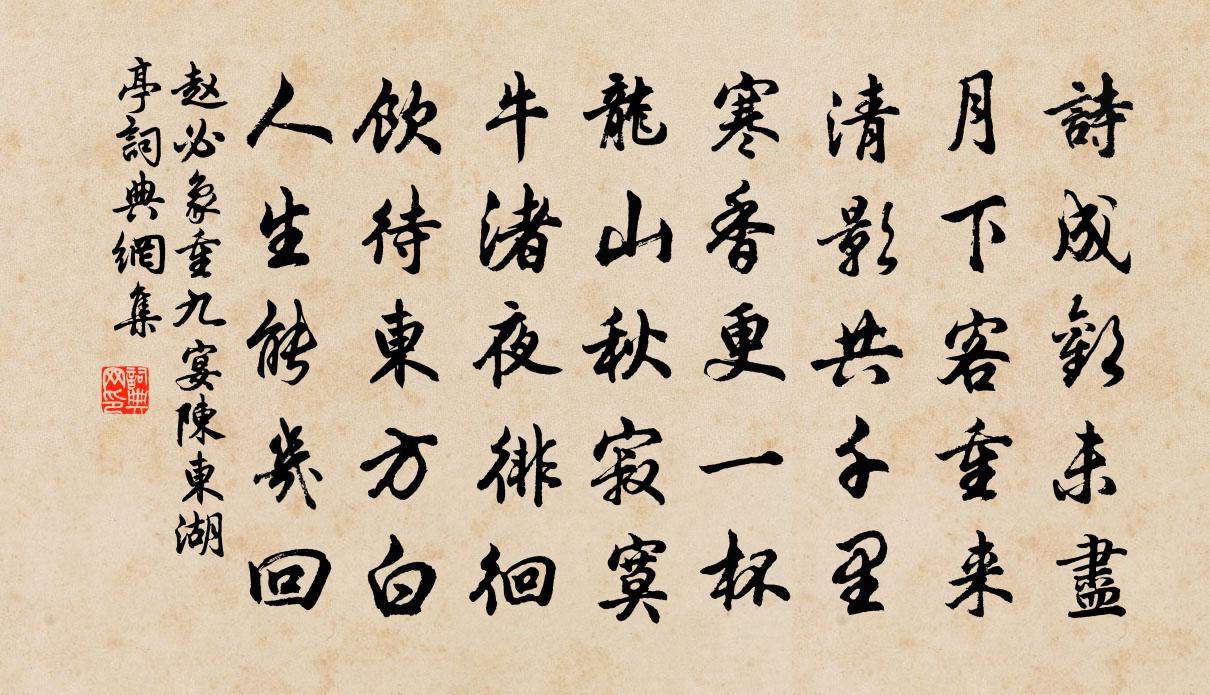 詩成歡未盡
月下客重来
清影共千里
寒香更一杯
龍山秋寂寞
牛渚夜徘徊
飲待東方白
人生能幾回
赵必象重九宴陳東湖
亭詞典網集
詞典網印